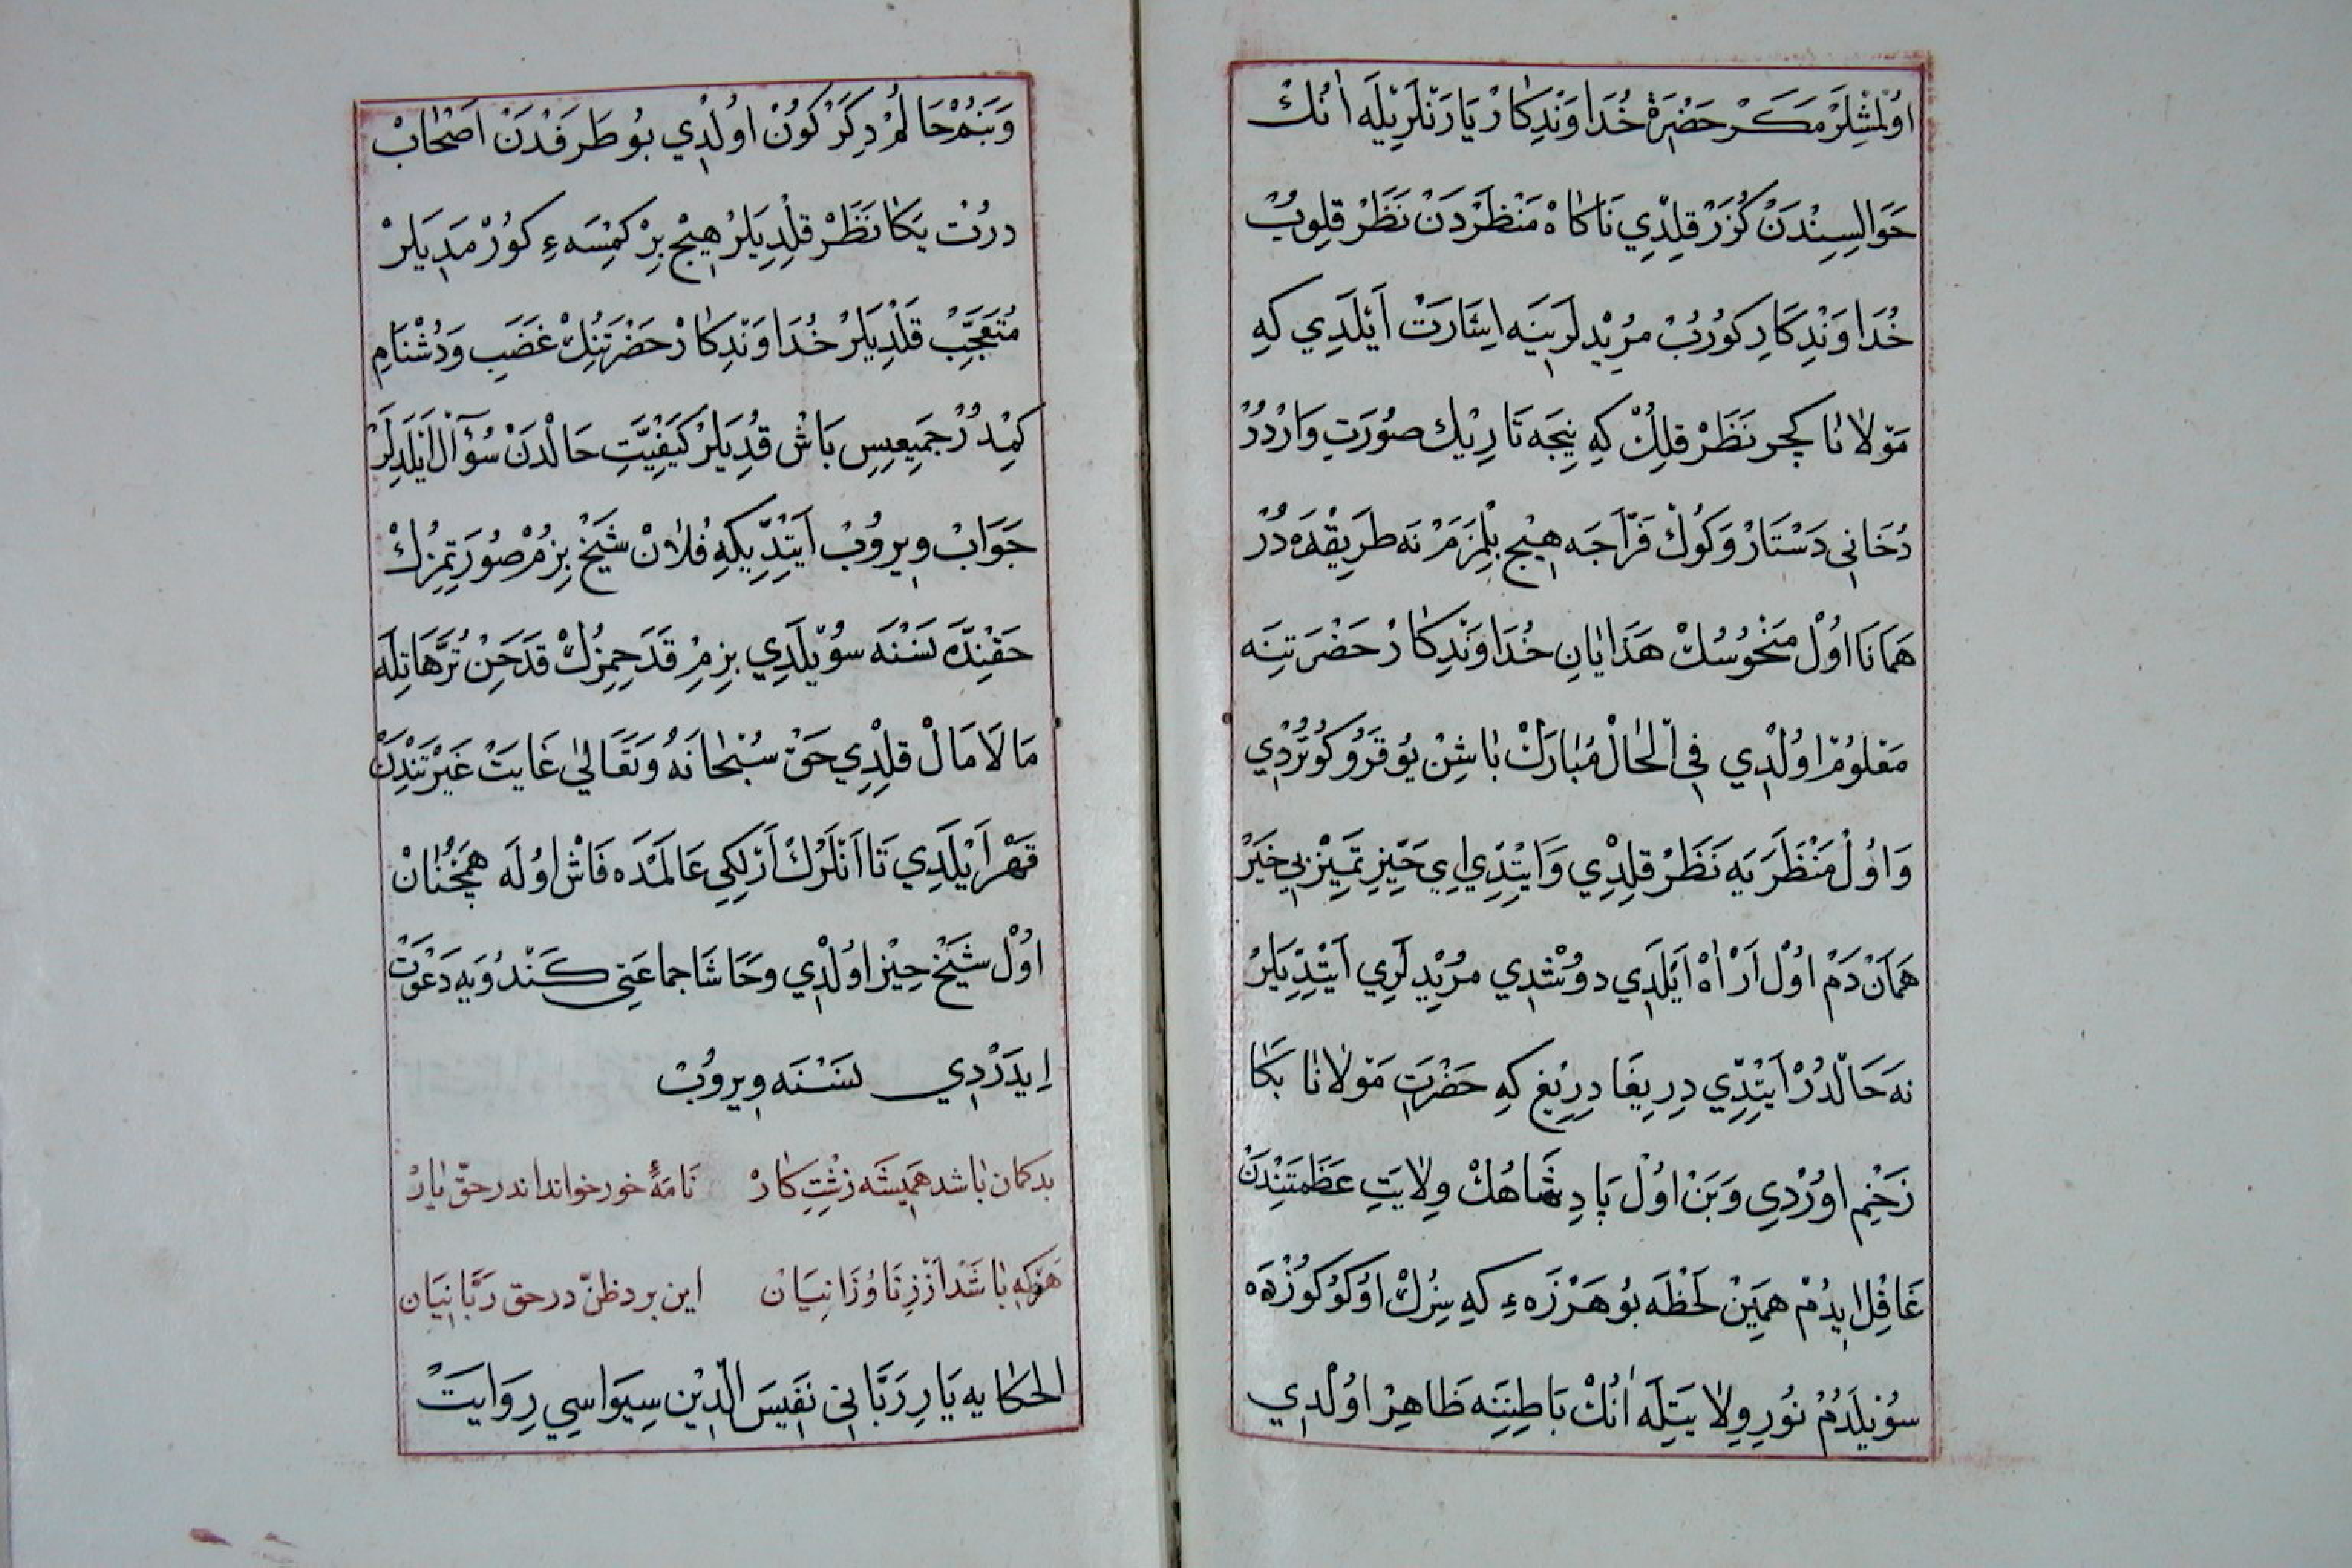 اوُلْمشْلِرْ مَكَرْ حَضْرَةْ خُدَاوَنْدِكَارْ يَارَنْلَرِيْلَه اَنُكْ
حَوَالِسِنْدَنْ كُزَرْ قِلْدِّي نَاكَاهْ مَنْظَرْدَنْ نَظَرْ قِلوُبْ
خُدَاوَنْدِكَارِ كوُرُبْ مرُيْدلَرِينَه اِشَارَتْ اَيْلَدِي كِه
مَوْلَانَا كچر نَظَرْ قِلِكْ كِه نِيجَه تَارِيْك صوُرَتِ وَارْدُرْ
دُخَانِي دَسْتَارْ وَكوُكْ فَرَّاجَه هِيْج بِلْمِزَمْ نَه طَرِيقْدَه دُرْ
هَمَانَا اوُلْ مَنْحُوسُكْ هَذَايَانِ خُدَاوَنْدِكَارْ حَضْرَتِنِه
مَعْلوُمْ اوُلْدِي فِي الْحَالْ مُبَارَكْ بَاشِنْ يوُقَرُو كوُتُرْدِي
وَاوُلْ مَنْظَرَيَه نَظَرْ قِلِدْي وَايْتِدْي اِي حَيِزِ تَمِيْزِ بِي خَيَرْ
هَمَانْ دَمْ اوُلْ اَرْ اَهْ اَيْلَدِي دوُشْدِي مرُيْدِلَرِي اَيْتِدِّيلَرْ
نَه حَالْدُرْ اَيْتِدِّي دِرِيغَا دِرِيْغ كِه حَضْرَتِ مَوْلَانَا بَكَا
زَخْمِ اوُرْدِي وَبَنْ اوُلْ پَادِشَاهُكْ وِلَايَتِ عَظَمَتِنْدَنْ
غَافِل اِيدُمْ هَمِينْ لَحْظَه بُو هَرْزَهءِ كِه سِزُكْ اوُكوُكوُزْدَه
سوُيْلَدُمْ نوُرِ وِلَايَتِلَه اَنُكْ بَاطِنِنَه ظَاهِرْ اوُلْدِي
وَبَنُمْ حَالُمْ دِكَرْ كوُنْ اوُلْدِي بوُ طَرَفْدَنْ اَصْحَابْ
دَرُتْ يَكَا نَظَرْ قِلْدِيلَرْ هِيْج بِرْ كِمْسَهءِ كوُرْمَدِيلَرْ
مُتَعَجِّبْ قَلْدِيلَرْ خُدَاوَنْدِكَارْ حَضْرَتِنُكْ غَضَبِ وَدُشْنَامِ
كِمْدُرْ جَمِيعِسِ بَاشْ قُدِيلَرْ كَيْفِيَّتِ حَالْدَنْ سُؤَآلْ اَيْلَدِلَرْ
جَوَابْ وِيروُبْ اَيْتِدِّيكِه فُلَانْ شَيْخْ بِزُمْ صوُرَتِمِزُكْ
حَقِنْدَه نَسْنَه سوُيْلَدِي بِزِمْ قَدَحِمِزُكْ قَدَحِنْ تُرَّهَاتِلَه
مَالَامَالْ قِلْدِي حَقْ سُبْحَانَهُ وَتَعَالَى غَايَتْ غَيْرَتِنْدَنْ
قَهْر اَيْلَدِي تَا اَنْلَرُكْ اَرْلِكِي عَالَمْدَه فَاشْ اوُلَه هَمْچُنَانْ
اوُلْ شَيْخْ حِيْز اوُلْدِي وحَاشَا جماعَتِي كَنْدوُيَه دَعْوَتْ
اِيدَرْدِي نَسْنَه وِيروُبْ
بدكمان باشد هَمِيشَه زِشْتِ كَارْ نَامَهٔ خور خواند اندر حقّ يارْ
هَرْكِه بَاشَدْ اَزْ زِنَا وُ زَانِيَانْ اين برد ظنّ در حق رَبَّانِيَان
الحكايه يَارِ رَبَّانِي نَفِيسَ الدِّيْن سِيَوَاسِي رِوَايَتْ